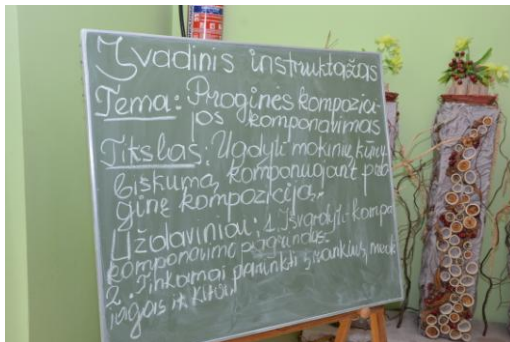 Įvadinis instruktažas
Tema: Proginės kompozici-
jos komponavimas
Tikslas: Ugdyti mokinių kūry-
biškumą, komponuojant pro-
ginę kompoziciją.
Uždaviniai: 1. Išvardyti komp.
komponavimo pagrindus.
2. Tinkamai parinkti įrankius, med
iagas ir kitą